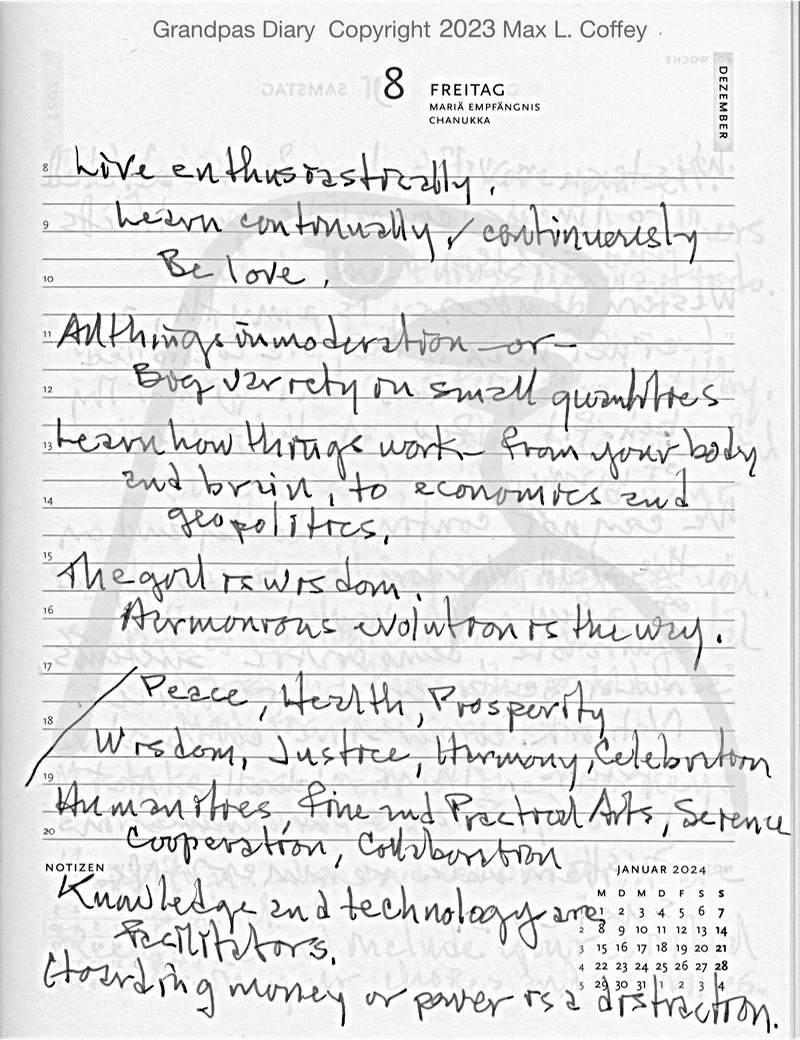 Grandpas Diary Copyright 2023 Max L. Coffey
8 FREITAG
MARIÄ EMPFÄNGNIS
CHANUKKA
DEZEMBER
8 Live enthusiastically,
9 Learn continually / continuously
10 Be love,
11 All things in moderation – or –
12 Big variety in small quantities
13 Learn how things work – from your body
and brain, to economics and
14 geopolitics.
15 The goal is wisdom.
16 Harmonious evolution is the way.
17 Peace, Health, Prosperity
18 Wisdom, Justice, Harmony, Celebration
19 Humanities, Fine and Practical Arts, Science
20 Cooperation, Collaboration
NOTIZEN
Knowledge and technology are
facilitators.
Hoarding money or power is a distraction.
JANUAR 2024
M D M D F S S
1 1 2 3 4 5 6 7
2 8 9 10 11 12 13 14
3 15 16 17 18 19 20 21
4 22 23 24 25 26 27 28
5 29 30 31 1 2 3 4